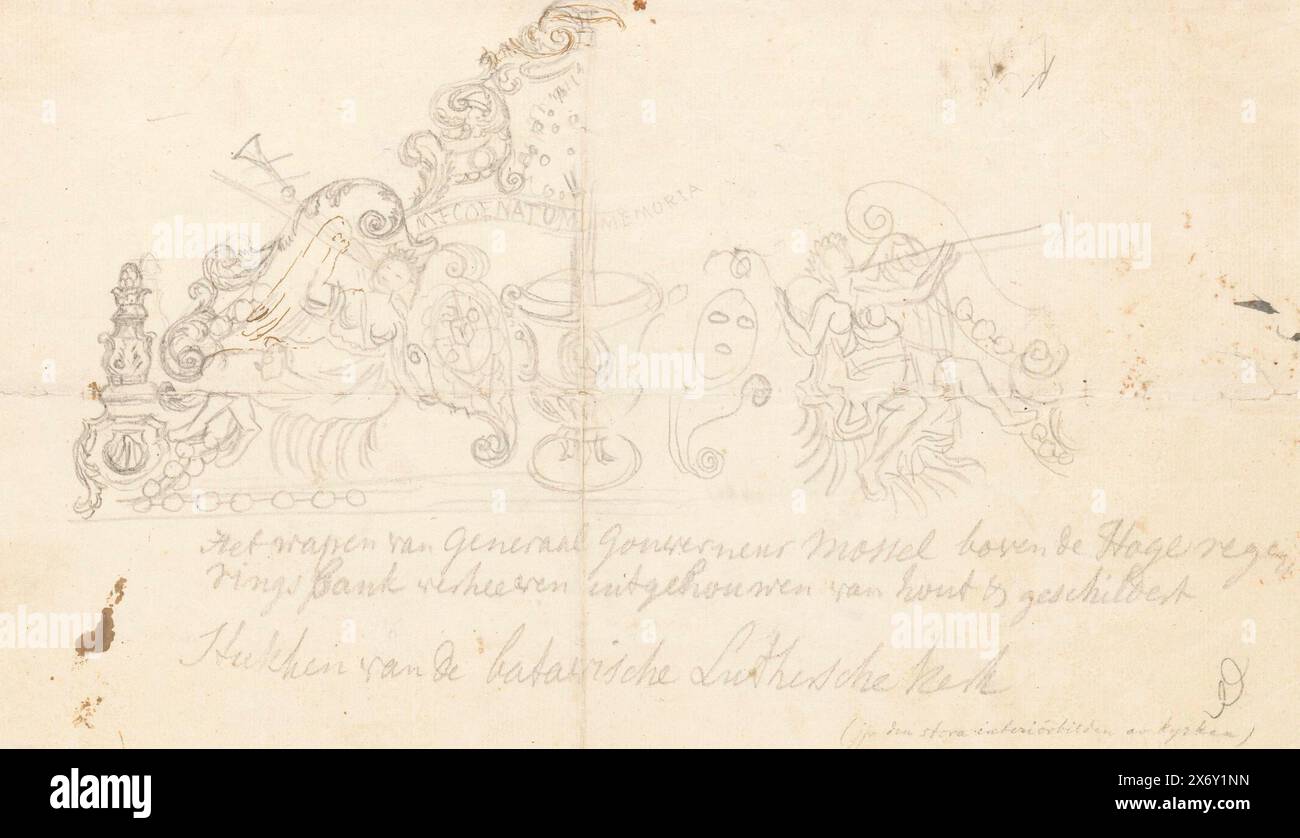 MECOENATUM MEMORIA
Het wapen van Generaal Gouwerneur Mossel boven de Hoge rege
rings bank verheeven uitgehouwen van hout & geschildert
Stukken van de batavische Luthersche kerk
(jfr den stora interiörbilden av kyrkan)
alamy
Image ID: 2X6Y1NN
www.alamy.com